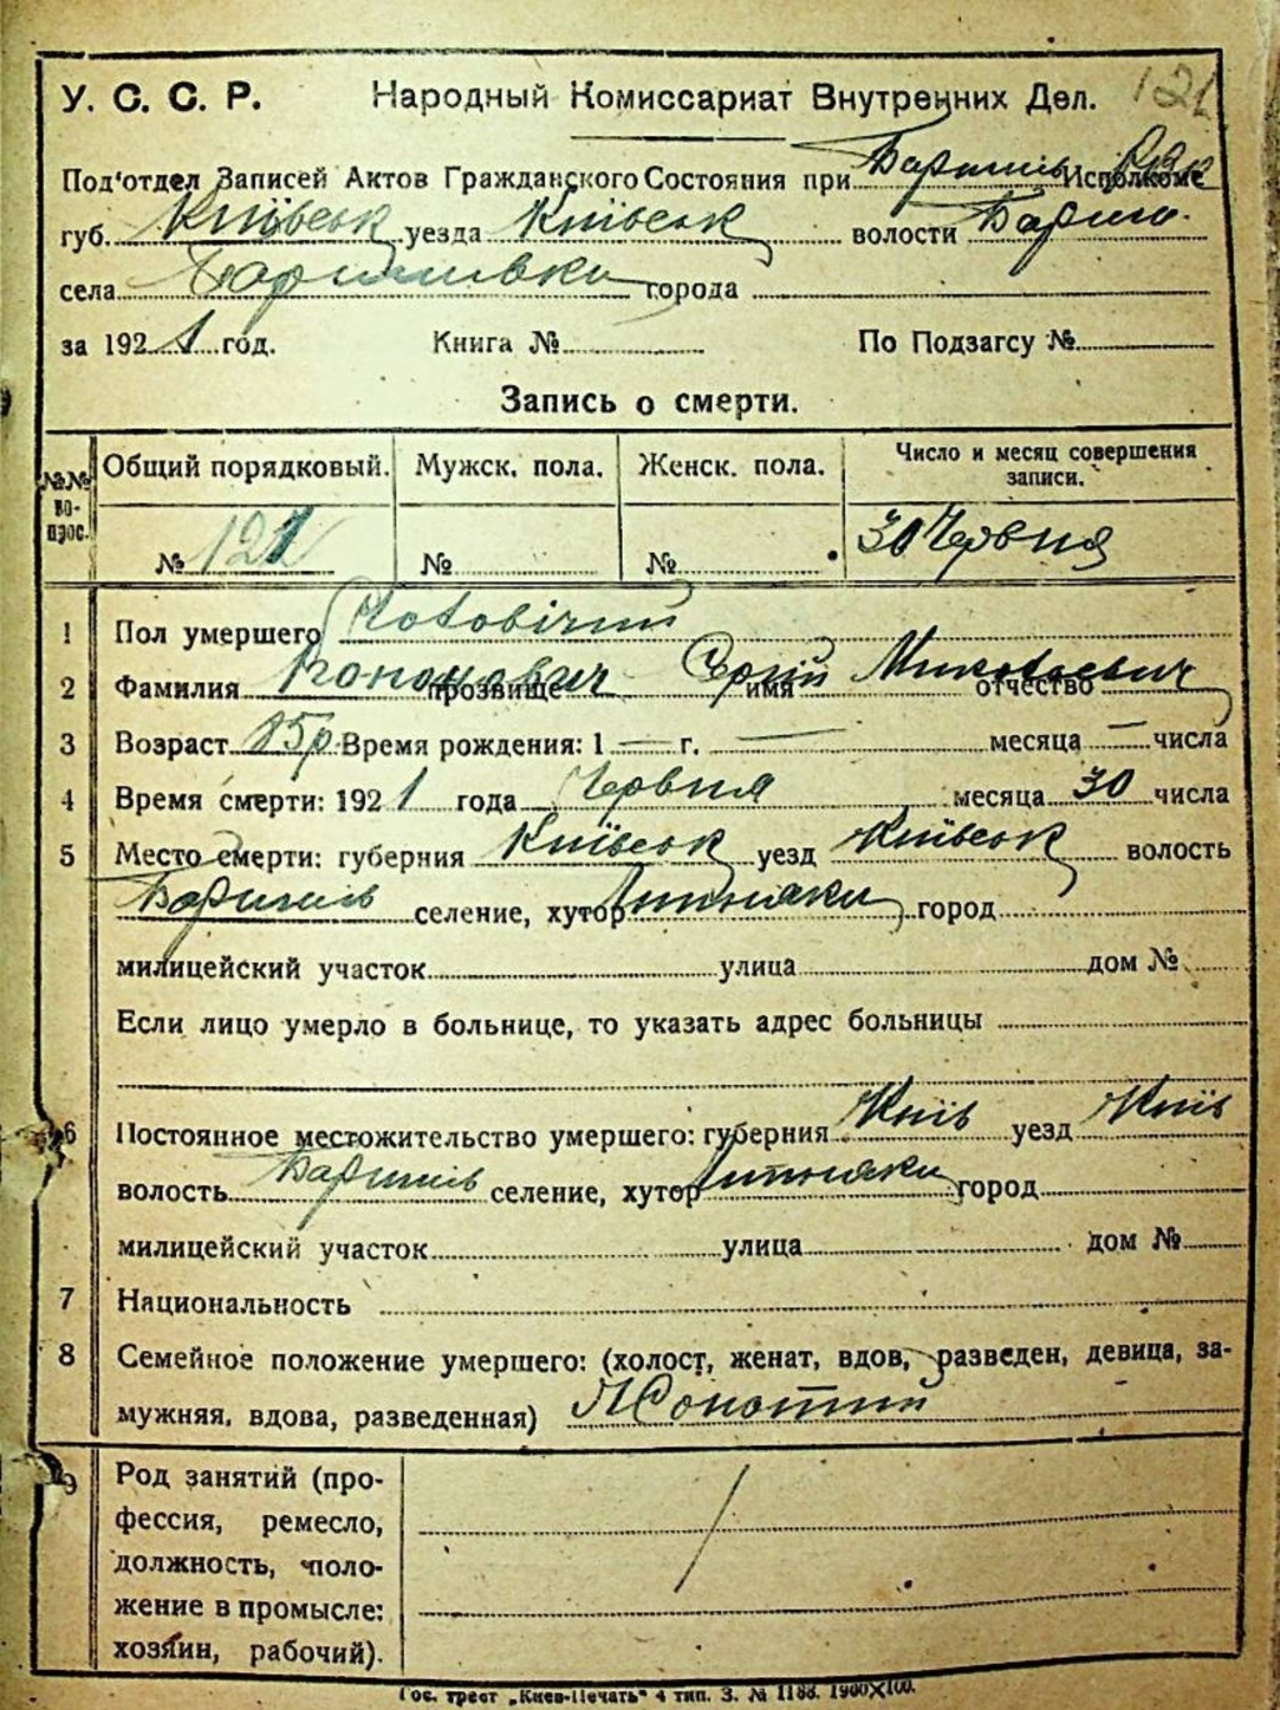 У. С. С. Р. Народный Комиссариат Внутренних Дел. 121
Под'отдел Записей Актов Гражданского Состояния при Баришів Исполкоме
губ. Київськ уезда Київськ волости Бариш.
села Баришівки города
за 1921 год. Книга № По Подзагсу №
Запись о смерти.
№№ вопрос. Общий порядковый. Мужск. пола. Женск. пола. Число и месяц совершения записи.
№ 121 № № 30 Червня
1 Пол умершего Чоловічий
2 Фамилия Кононович прозвище Сергій имя Миколаевич отчество
3 Возраст 85р. Время рождения: 1 — г. — месяца — числа
4 Время смерти: 1921 года Червня месяца 30 числа
5 Место смерти: губерния Київськ уезд Київськ волость
Баришів селение, хутор город
милицейский участок улица дом №
Если лицо умерло в больнице, то указать адрес больницы
6 Постоянное местожительство умершего: губерния Київ уезд Київ
волость Баришів селение, хутор город
милицейский участок улица дом №
7 Национальность
8 Семейное положение умершего: (холост, женат, вдов, разведен, девица, за-
мужняя, вдова, разведенная) Жонатий
9 Род занятий (про-
фессия, ремесло,
должность, поло-
жение в промысле:
хозяин, рабочий).
Гос. трест „Киев-Печать" 4 тип. З. № 1188. 1900×100.